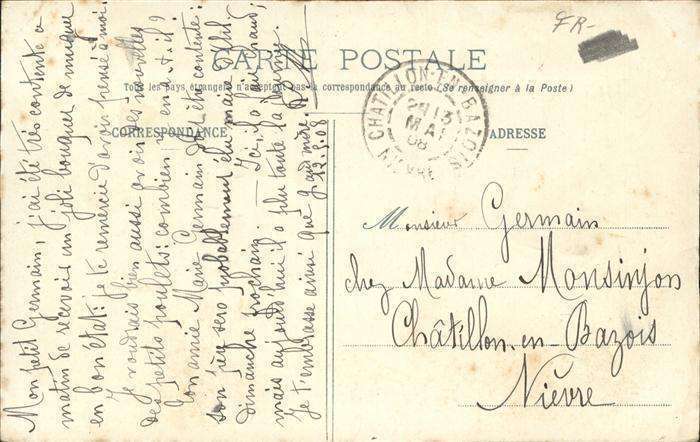 FR-
CARTE POSTALE
Tous les pays étrangers n'acceptent pas la correspondance au recto (Se renseigner à la Poste)
CORRESPONDANCE
ADRESSE
CHATILLON-EN-BAZOIS
13
MAI
08
NIÈVRE
Monsieur Germain
chez Madame Monsinjon
Châtillon-en-Bazois
Nièvre
Mon petit Germain, j'ai été très contente ce
matin de recevoir un joli bouquet de muguet
en bon état: je te remercie d'avoir pensé à moi.
Je voudrais bien aussi avoir des nouvelles
des petits poulets: combien y en a-t-il?
Ton amie Marie Germain doit être contente:
son père sera probablement élu maire
dimanche prochain. Ici, il a fait chaud;
mais aujourd'hui il a plu toute la
Je t'embrasse ainsi que grand'mère.
12.5.08